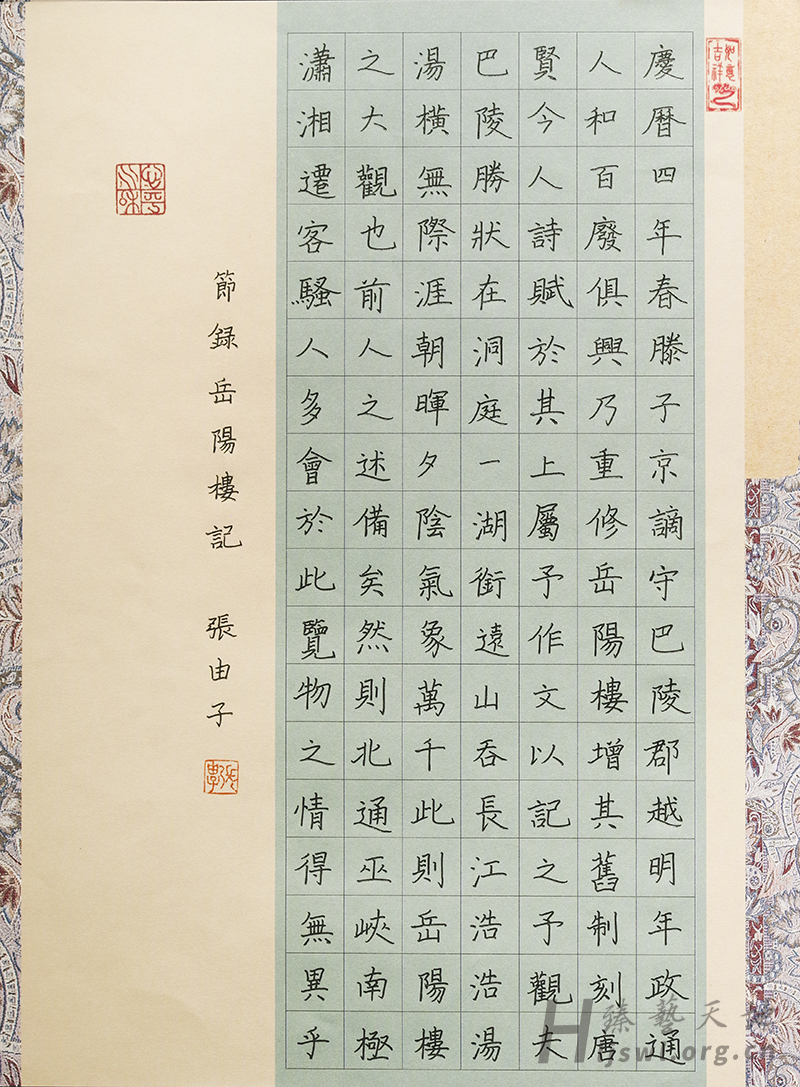 慶曆四年春滕子京謫守巴陵郡越明年政通
人和百廢俱興乃重修岳陽樓增其舊制刻唐
賢今人詩賦於其上屬予作文以記之予觀夫
巴陵勝狀在洞庭一湖銜遠山吞長江浩浩湯
湯橫無際涯朝暉夕陰氣象萬千此則岳陽樓
之大觀也前人之述備矣然則北通巫峽南極
瀟湘遷客騷人多會於此覽物之情得無異乎
節録岳陽樓記 張由子
如意吉祥
臻藝天地